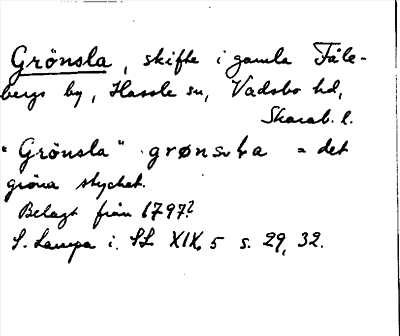 Grönsla, skifte i gamla Fåle-
bergs by, Hassle sn, Vadsbo hd,
Skarab. l.
"Grönsla" grønsla = det
gröna stycket.
Belagt från 1797?
S. Lampa i SL XIX, 5 s. 29, 32.